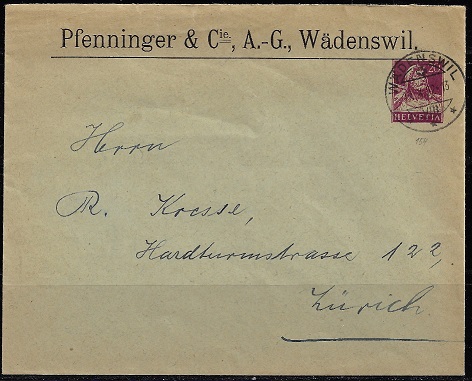 Pfenninger & Cie., A.-G., Wädenswil.
WÄDENSWIL
HELVETIA
Herrn
R. Kresse,
Hardturmstrasse 122,
Zürich